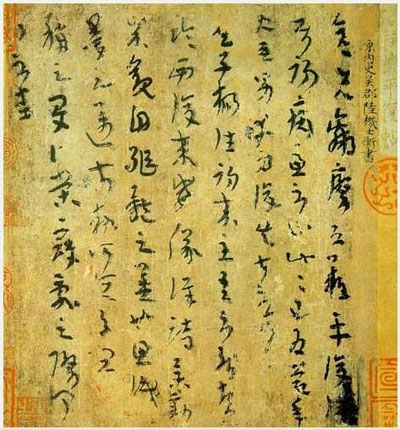 原內史吳郡陸機士衡書
彥先羸瘵恐難平復往屬
初病慮不止此此已為慶承使
唯男幸為復失前憂耳吳
子楊往初來主吾不能盡
臨西復來威儀詳跱舉動
成觀自軀體之美也思識
量之邁前執所恒有宜
稱之夏伯榮寇亂之際聞
問不悉